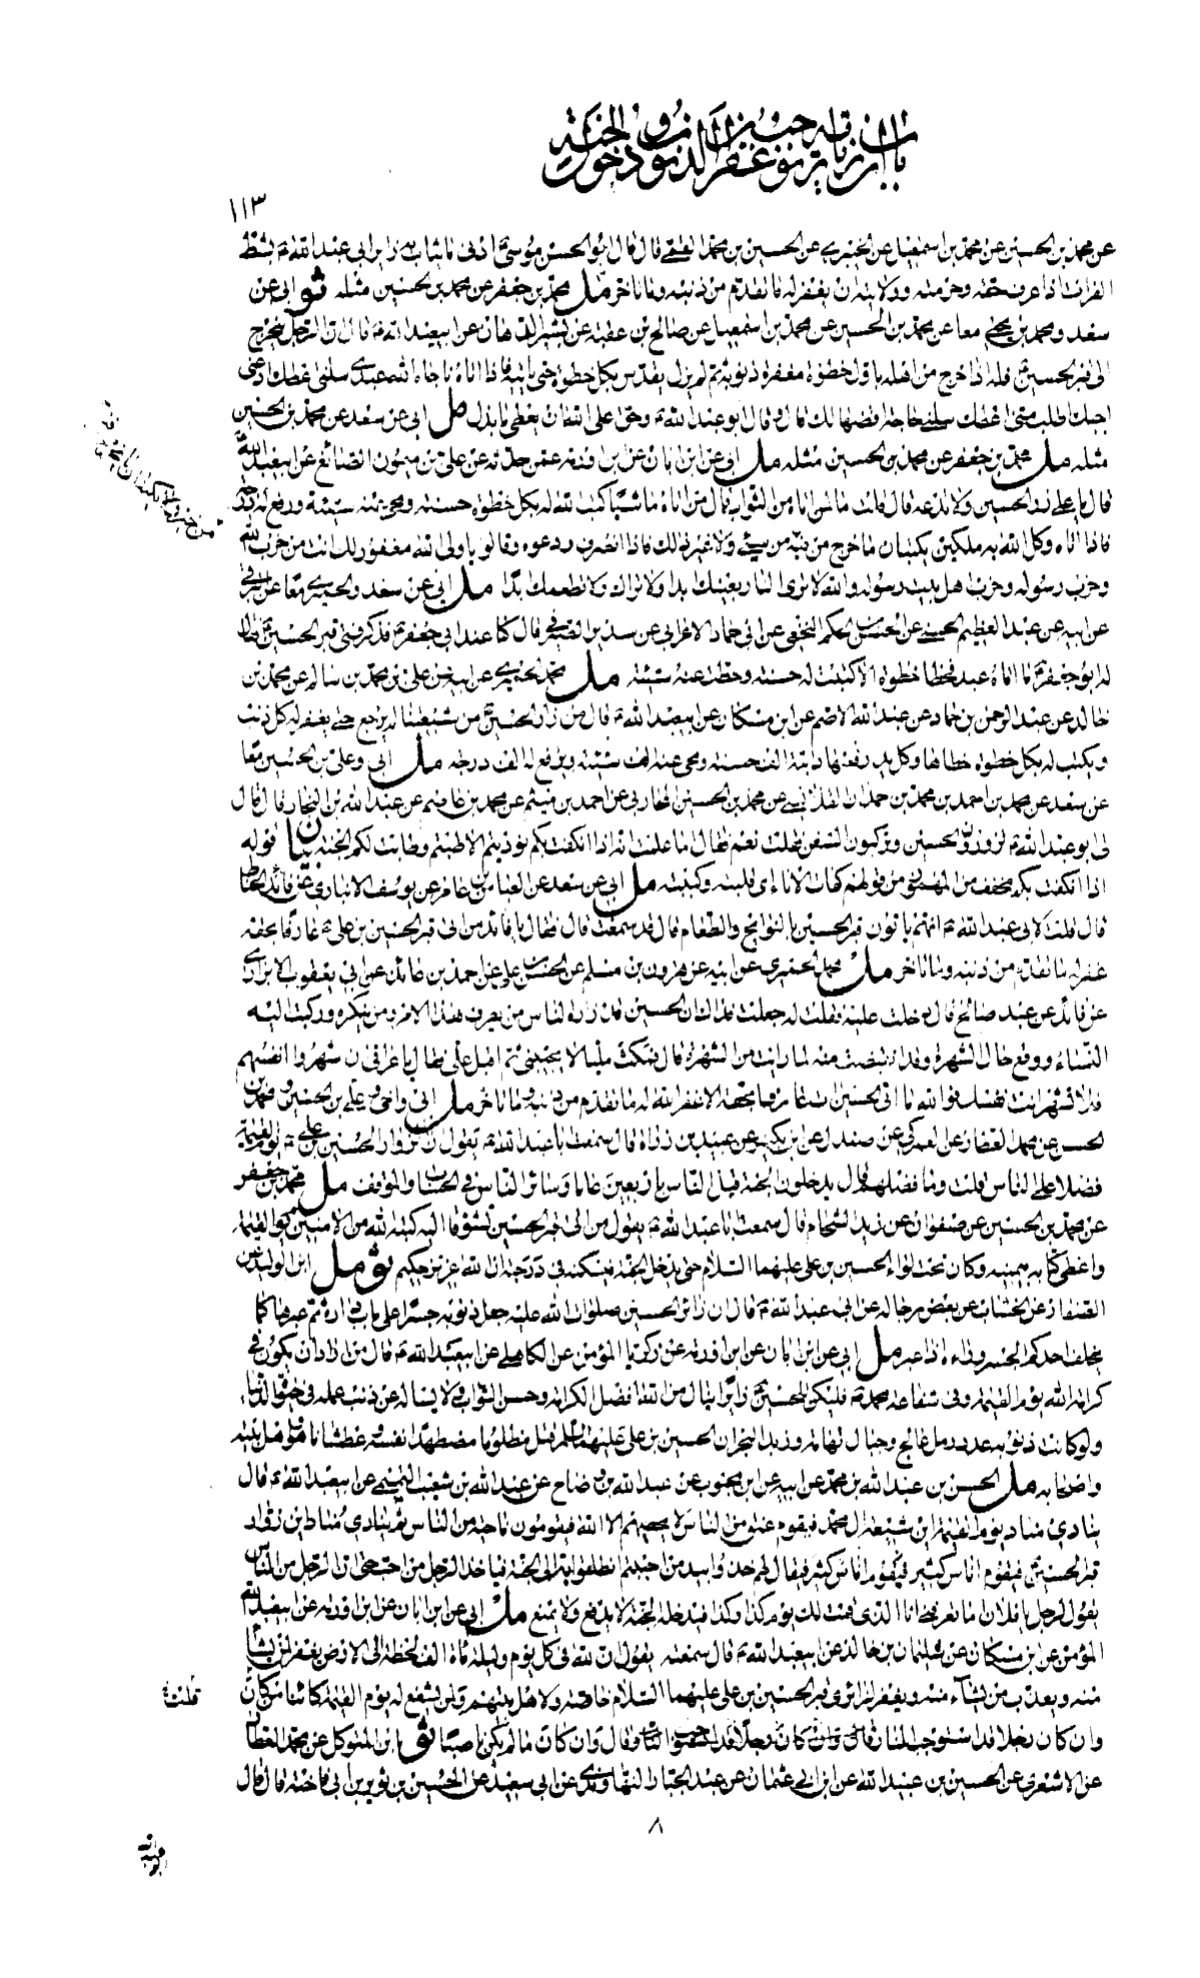 باب ان زيارته توجب غفران الذنوب ودخول الجنة
١١٣
عن محمد بن الحسين عن محمد بن اسمعيل عن الخيبري عن الحسين بن محمد القمي قال قال ابو الحسن موسى ادنى ما يثاب به زائر ابي عبد الله بشط
الفرات اذا عرف حقه وحرمته وولايته ان يغفر له ما تقدم من ذنبه وما تاخر مل محمد بن جعفر عن محمد بن الحسين مثله ثو ابي عن
سعد ومحمد بن يحيى معا عن محمد بن الحسين عن محمد بن اسمعيل عن صالح بن عقبة عن بشير الدهان عن ابي عبد الله قال ان الرجل ليخرج
الى قبر الحسين فله اذا خرج من اهله باول خطوة مغفرة ذنوبه ثم لم يزل يقدس بكل خطوة حتى ياتيه فاذا اتاه ناجاه الله عبدي سلني اعطك ادعني
اجبك اطلب مني اعطك سلني حاجة اقضها لك قال وقال ابو عبد الله وحق على الله ان يعطي ما بذل مل ابي عن سعد عن محمد بن الحسين
مثله مل محمد بن جعفر عن محمد بن الحسين مثله مل ابي عن ابن ابان عن ابن اورمة عمن حدثه عن علي بن ميمون الصائغ عن ابي عبد الله
قال يا علي زر الحسين ولا تدعه قال قلت ما لمن اتاه من الثواب قال من اتاه ماشيا كتب الله له بكل خطوة حسنة ومحى عنه سيئة ورفع له درجة
فاذا اتاه وكل الله به ملكين يكتبان ما خرج من فيه من خير ولا غير ذلك فاذا انصرف ودعوه وقالوا يا ولي الله مغفور لك انت من حزب الله
وحزب رسوله وحزب اهل بيت رسوله والله لا ترى النار بعينك ابدا ولا تراك ولا تطعمك ابدا مل ابي عن سعد والحميري معا عن البرقي
عن ابيه عن عبد العظيم الحسني عن الحسن بن الحكم النخعي عن ابي حماد الاعرابي عن سدير الصيرفي قال كنا عند ابي جعفر فذكر فتى قبر الحسين فقال
له ابو جعفر ما اتاه عبد فخطا خطوة الا كتبت له حسنة وحطت عنه سيئة مل محمد الحميري عن ابيه عن علي بن محمد بن سالم عن محمد بن
خالد عن عبد الرحمن بن حماد عن عبد الله الاصم عن ابن مسكان عن ابي عبد الله قال من زار الحسين من شيعتنا لم يرجع حتى يغفر له كل ذنب
ويكتب له بكل خطوة خطاها وكل يد رفعتها دابته الف حسنة ومحى عنه الف سيئة ويرفع له الف درجة مل ابي وعلي بن الحسين معا
عن سعد عن محمد بن احمد بن محمد بن حمدان القلانسي عن محمد بن الحسين المحاربي عن احمد بن ميثم عن محمد بن عاصم عن عبد الله بن النجار قال قال
لي ابو عبد الله تزورون الحسين وتركبون السفن فقلت نعم فقال ما علمت انها اذا انكفت بكم نوديتم الا طبتم وطابت لكم الجنة بيان قوله
اذا انكفت بكم مخفف من المهموز من قولهم كفات الاناء اي قلبته وكببته مل ابي عن سعد عن العباس بن عامر عن يوسف الانباري عن فائد الحناط
قال قلت لابي عبد الله انهم ياتون قبر الحسين بالنوائح والطعام قال قد سمعت قال فقال يا فائد من اتى قبر الحسين بن علي عارفا بحقه
غفر له ما تقدم من ذنبه وما تاخر مل محمد الحميري عن ابيه عن هرون بن مسلم عن الحسن بن علي عن احمد بن عائذ عن ابي يعقوب الابزاري
عن فائد عن عبد صالح قال دخلت عليه فقلت له جعلت فداك ان الحسين قد زاره الناس من يعرف هذا الامر ومن ينكره وركبت اليه
النساء ووقع حال الشهرة وقد انقبضت منه لما رايت من الشهرة قال فمكث مليا لا يجيبني ثم اقبل علي فقال يا عراقي ان شهروا انفسهم
فلا تشهر انت نفسك فوالله ما اتى الحسين آت عارفا بحقه الا غفر الله له ما تقدم من ذنبه وما تاخر مل ابي واخي وعلي بن الحسين ومحمد بن
الحسن عن محمد العطار عن العمركي عن صندل عن ابن بكير عن عبيد بن زرارة قال سمعت ابا عبد الله يقول ان لزوار الحسين بن علي يوم القيمة
فضلا على الناس قلت وما فضلهم قال يدخلون الجنة قبل الناس باربعين عاما وسائر الناس في الحساب والموقف مل محمد بن جعفر
عن محمد بن الحسين عن صفوان عن زيد الشحام قال سمعت ابا عبد الله يقول من اتى قبر الحسين تشوقا اليه كتبه الله من الامنين يوم القيمة
واعطي كتابه بيمينه وكان تحت لواء الحسين بن علي عليهما السلام حتى يدخل الجنة فيسكنه في درجته ان الله عزيز حكيم ثو مل ابن الوليد عن
الصفار عن الخشاب عن بعض رجاله عن ابي عبد الله قال ان زائر الحسين صلوات الله عليه جعل ذنوبه جسرا على باب داره ثم عبرها كما
يخلف احدكم الجسر وراءه اذا عبر مل ابي عن ابن ابان عن ابن اورمة عن زكريا المؤمن عن الكاهلي عن ابي عبد الله قال من اراد ان يكون في
كرامة الله يوم القيمة وفي شفاعة محمد فليكن للحسين زائرا ينال من الله افضل الكرامة وحسن الثواب ولا يسئله عن ذنب عمله في حيوة الدنيا
ولو كانت ذنوبه عدد رمل عالج وجبال تهامة وزبد البحر ان الحسين بن علي عليهما السلم قتل مظلوما مضطهدا نفسه وعطشانا هو واهل بيته
واصحابه مل الحسن بن عبد الله بن محمد عن ابيه عن ابن محبوب عن عبد الله بن وضاح عن عبد الله بن شعيب التيمي عن ابي عبد الله قال
ينادي مناد يوم القيمة اين شيعة ال محمد فيقوم عنق من الناس لا يحصيهم الا الله فيقومون ناحية من الناس ثم ينادي مناد اين زوار
قبر الحسين فيقوم اناس كثير فيقال لهم خذوا بيد من احببتم انطلقوا بهم الى الجنة فياخذ الرجل من احب حتى ان الرجل من الناس
يقول لرجل يا فلان اما تعرفني انا الذي قمت لك يوم كذا وكذا فيدخله الجنة لا يدفع ولا يمنع مل ابي عن ابن ابان عن ابن اورمة عن ابي عبد الله
المؤمن عن ابن مسكان عن سليمان بن خالد عن ابي عبد الله قال سمعته يقول ان لله في كل يوم وليلة مائة الف لحظة الى الارض يغفر لمن يشاء
منه ويعذب من يشاء منه ويغفر لزائري قبر الحسين بن علي عليهما السلام خاصة ولاهل بيتهم ولمن يشفع له يوم القيمة كائنا من كان
قلت
وان كان رجلا قد استوجب النار قال وان كان رجلا قد استوجب النار وقال وان كان ما لم يكن ناصبيا ثو ابن المتوكل عن محمد العطار
عن الاشعري عن الحسين بن عبيد الله عن ابن ابي عثمان عن عبد الجبار النهاوندي عن ابي سعيد عن الحسين بن ثوير بن ابي فاختة قال قال
٨